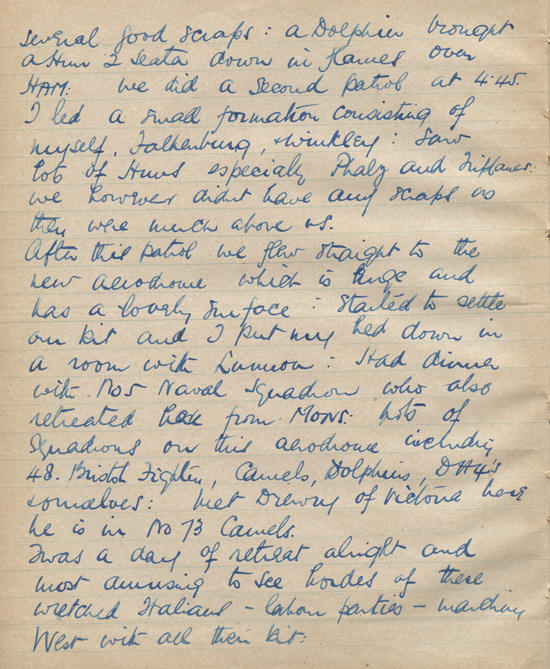 several good scraps: a Dolphin brought
a Hun 2 seater down in flames over
HAM. We did a second patrol at 4.45.
I led a small formation consisting of
myself, Falkenburg, & Winkley: Saw
lots of Huns especially Phalz and Triplanes.
We however didnt have any scraps as
they were much above us.
After this patrol we flew straight to the
new aerodrome which is huge and
has a lovely surface: Started to settle
our kit and I put my bed down in
a room with
Had dinner
with No 5 Naval Squadron who also
retreated here from Mons. Lots of
Squadrons on this aerodrome including
48. Bristol Fighters, Camels, Dolphins, DH4's
& ourselves: Met Drewry of Victoria here
he is in No 73 Camels.
Twas a day of retreat alright and
most amusing to see hordes of these
wretched Italians - labour parties - marching
West with all their kit: